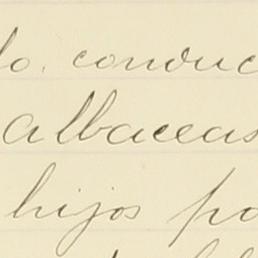 lo conduc
albaceas
hijos po